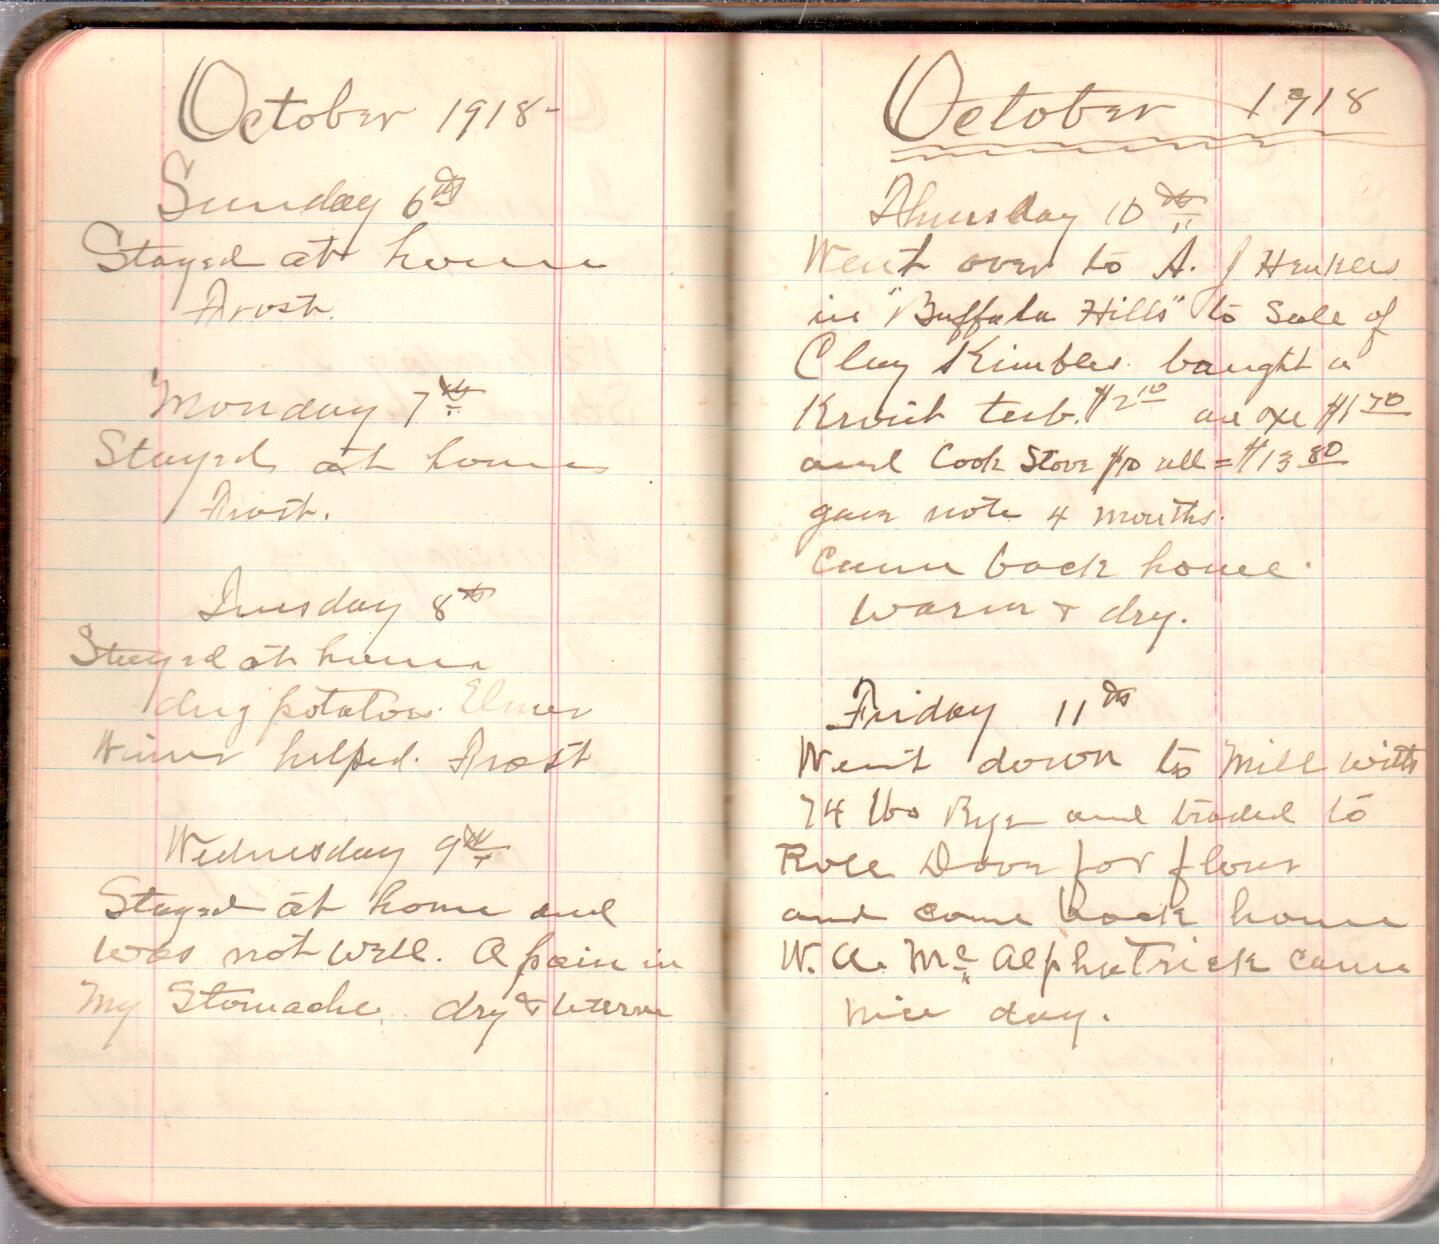 October 1918-
Sunday 6th
Stayed at home
Frost.
Monday 7th
Stayed at home
Frost.
Tuesday 8th
Stayed at home
dug potatoes. Elmer
Wimer helped. Frost
Wednesday 9th
Stayed at home and
was not well. A pain in
My Stomache. dry & warm
October 1918
Thursday 10th
Went over to A. J Henkles
in "Buffalo Hills" to Sale of
Clay Kimbles. bought a
Krout tub. $2 10 an axe $1 70
and Cook Stove $10 all = $13 80
gave note 4 months.
Came back home.
Warm & dry.
Friday 11th
Went down to Mill with
74 lbs Rye and traded to
Dove for flour
and come back home
W. A. Mc came
nice day.